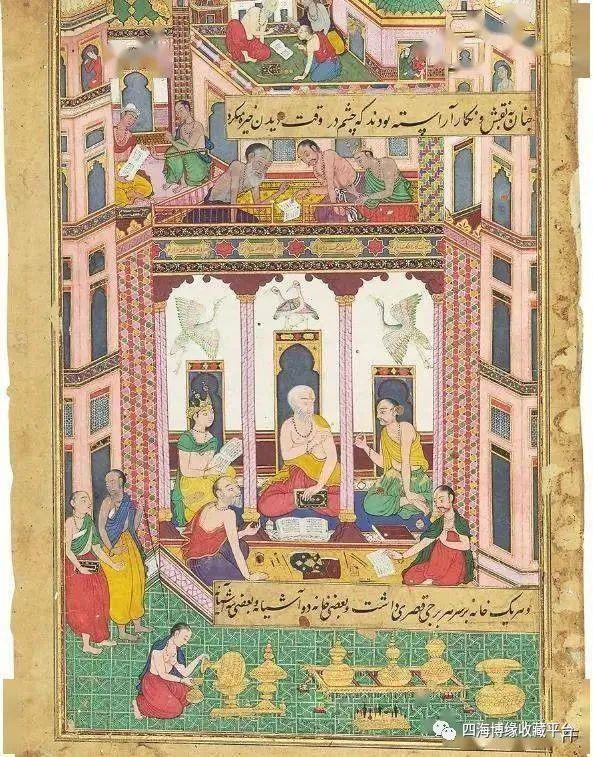 چنان بنقش و نگار آراسته بودند که چشم در وقت دیدن خیره میکرد
و هر یک خانه بر سر هر برجی قصری داشت بعضی خانه دو آشیانه و بعضی سه
四海博缘收藏平台